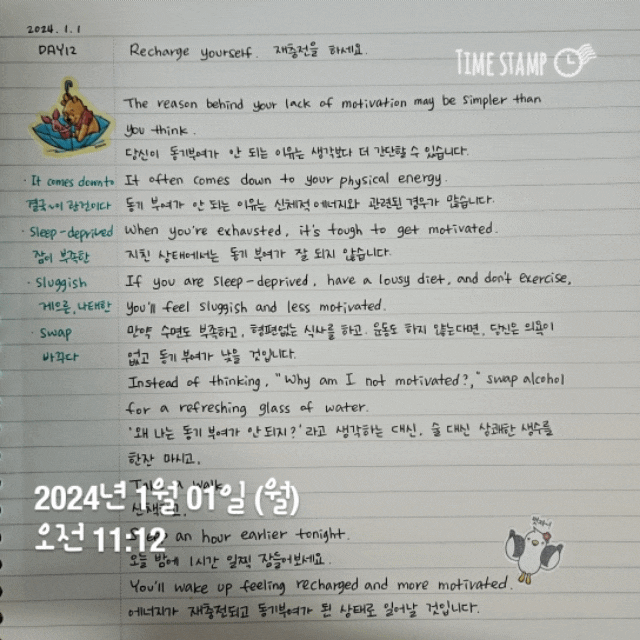 2024. 1. 1
DAY12 Recharge yourself. 재충전을 하세요.
TIME STAMP
The reason behind your lack of motivation may be simpler than
you think.
당신이 동기부여가 안 되는 이유는 생각보다 더 간단할 수 있습니다.
· It comes down to It often comes down to your physical energy.
결국 ~이 관건이다 동기 부여가 안 되는 이유는 신체적 에너지와 관련된 경우가 많습니다.
· Sleep-deprived When you're exhausted, it's tough to get motivated.
잠이 부족한 지친 상태에서는 동기 부여가 잘 되지 않습니다.
· Sluggish If you are sleep-deprived, have a lousy diet, and don't exercise,
게으른, 나태한 You'll feel sluggish and less motivated.
· Swap 만약 수면도 부족하고, 형편없는 식사를 하고, 운동도 하지 않는다면, 당신은 의욕이
바꾸다 없고 동기 부여가 낮을 것입니다.
Instead of thinking, "Why am I not motivated?," swap alcohol
for a refreshing glass of water.
'왜 나는 동기 부여가 안 되지?' 라고 생각하는 대신, 술 대신 상쾌한 생수를
한잔 마시고,
walk
2024년 1월 01일 (월)
오전 11:12
an hour earlier tonight.
오늘 밤에 1시간 일찍 잠들어보세요.
You'll wake up feeling recharged and more motivated.
에너지가 재충전되고 동기부여가 된 상태로 일어날 것입니다.